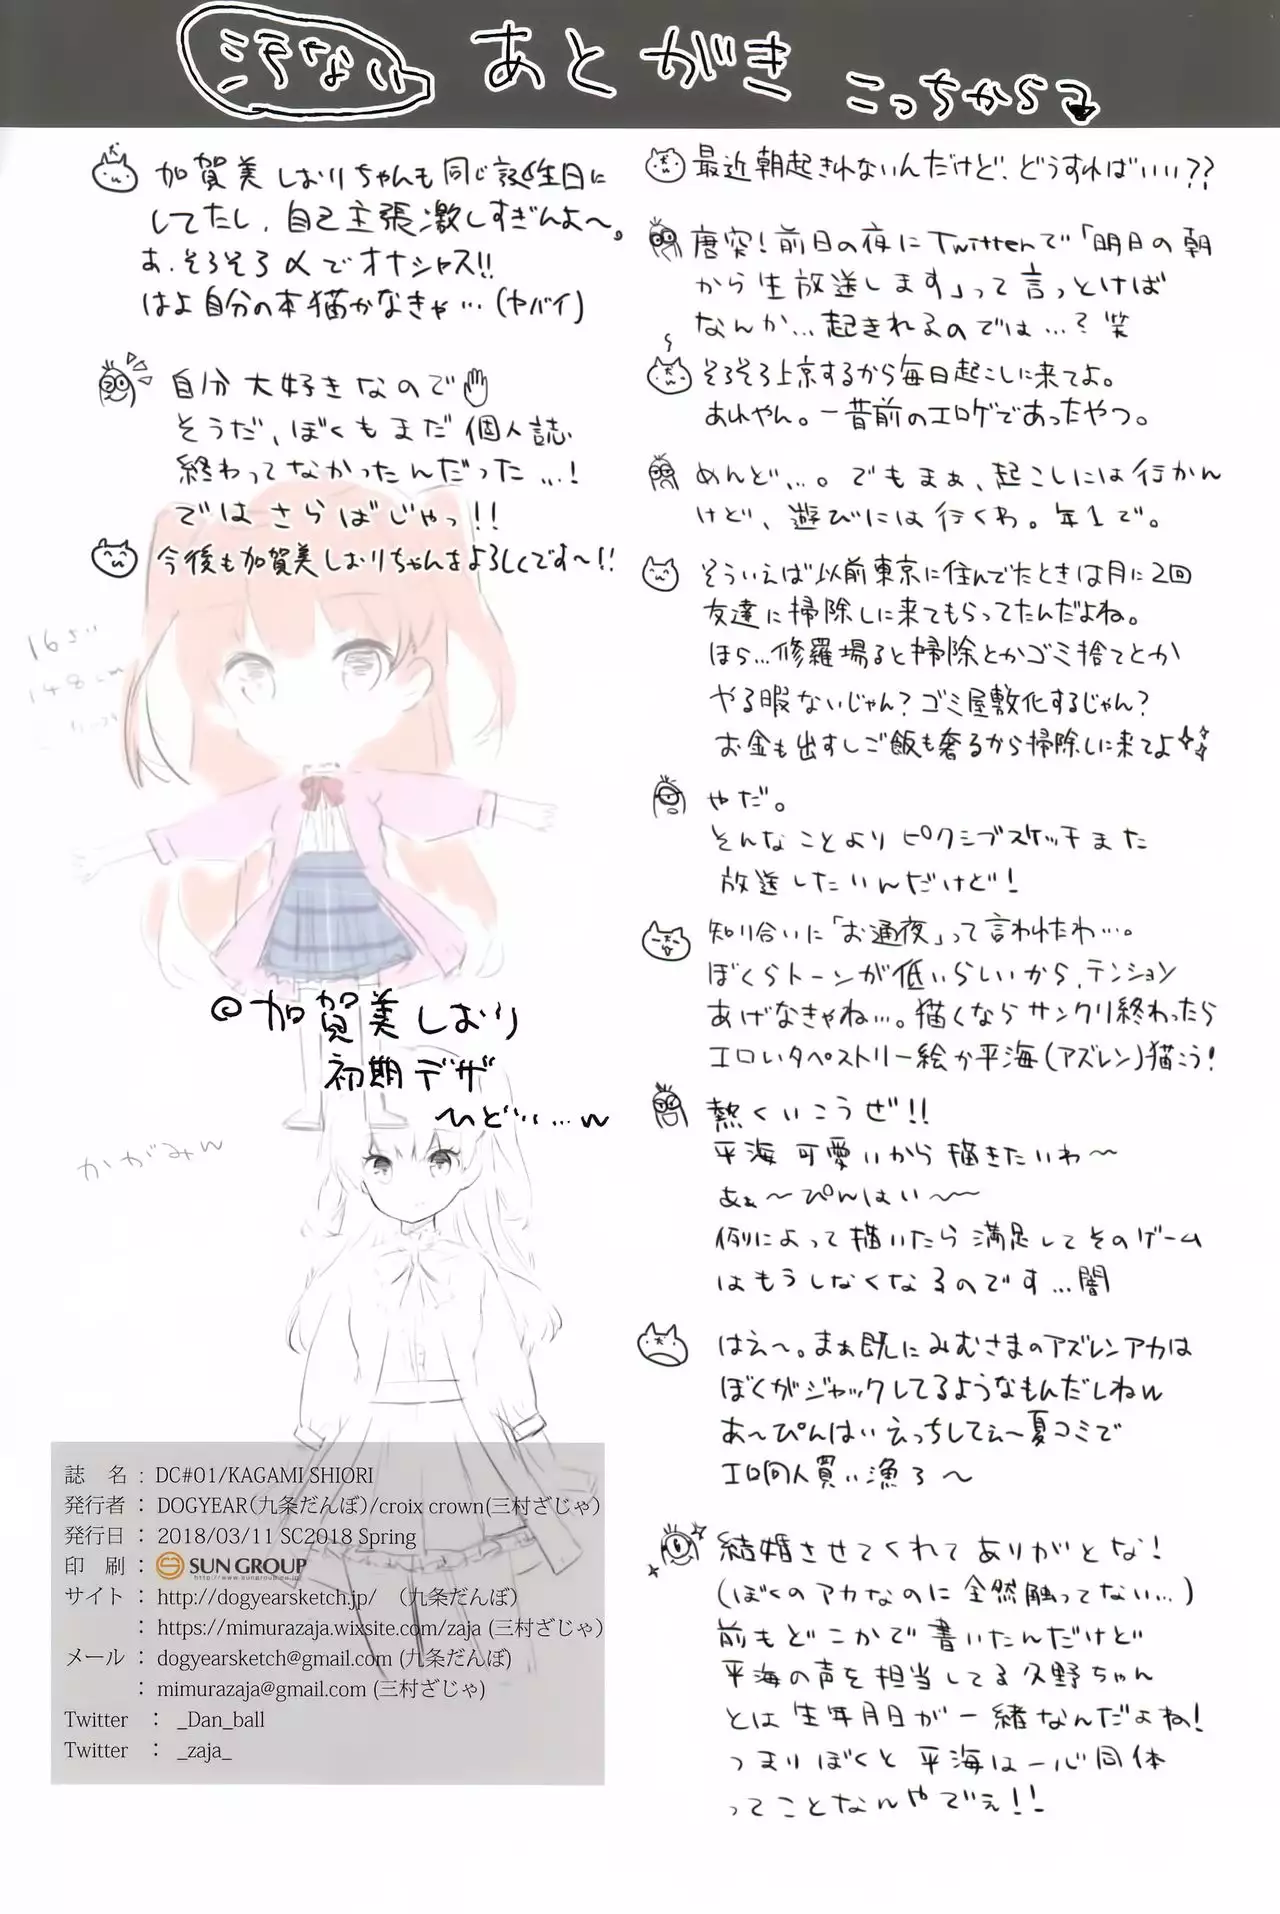 汚ない あとがき こっちから
最近朝起きれないんだけど、どうすればいい??
唐突!前日の夜にTwitterで「明日の朝
から生放送します」って言っとけば
なんか…起きれるのでは…?笑
そろそろ上京するから毎日起こしに来てよ。
あれやん。一昔前のエロゲであったやつ。
めんど…。でもまぁ、起こしには行かん
けど、遊びには行くわ。年1で。
そういえば以前東京に住んでたときは月に2回
友達に掃除しに来てもらってたんだよね。
ほら…修羅場ると掃除とかゴミ捨てとか
やる暇ないじゃん?ゴミ屋敷化するじゃん?
お金も出すしご飯も奢るから掃除しに来てよ
やだ。
そんなことよりピクシブスケッチまた
放送したいんだけど!
知り合いに「お通夜」って言われたわ…。
ぼくらトーンが低いらしいから、テンション
あげなきゃね…。描くならサンクリ終わったら
エロいタペストリー絵か平海(アズレン)描こう!
熱くいこうぜ!!
平海可愛いから描きたいわ〜
あぁ〜ぴんはい〜
例によって描いたら満足してそのゲーム
はもうしなくなるのです…闇
はえ〜。まぁ既にみむさまのアズレンアカは
ぼくがジャックしてるようなもんだしねw
あ〜ぴんはいえっちしてぇ〜夏コミで
エロ同人買い漁ろ〜
結婚させてくれてありがとな!
(ぼくのアカなのに全然触ってない…)
前もどこかで書いたんだけど
平海の声を担当してる久野ちゃん
とは生年月日が一緒なんだよね!
つまりぼくと平海は一心同体
ってことなんやでぇ!!
加賀美しおりちゃんも同じ誕生日に
してたし、自己主張激しすぎんよ〜。
あ、そろそろ〆でオナシャス!!
はよ自分の本描かなきゃ…(ヤバイ)
自分大好きなので
そうだ、ぼくもまだ個人誌
終わってなかったんだった…!
ではさらばじゃっ!!
今後も加賀美しおりちゃんをよろしくです〜!!
148cm
加賀美しおり
初期デザ
〜ひど……w
かがみん
誌 名 : DC#01/KAGAMI SHIORI
発行者 : DOGYEAR(九条だんぼ)/croix crown(三村ざじゃ)
発行日 : 2018/03/11 SC2018 Spring
印 刷 : SUN GROUP
http://www.sungroup.co.jp
サイト : http://dogyearsketch.jp/ (九条だんぼ)
: https://mimurazaja.wixsite.com/zaja (三村ざじゃ)
メール : dogyearsketch@gmail.com (九条だんぼ)
: mimurazaja@gmail.com (三村ざじゃ)
Twitter : _Dan_ball
Twitter : _zaja_